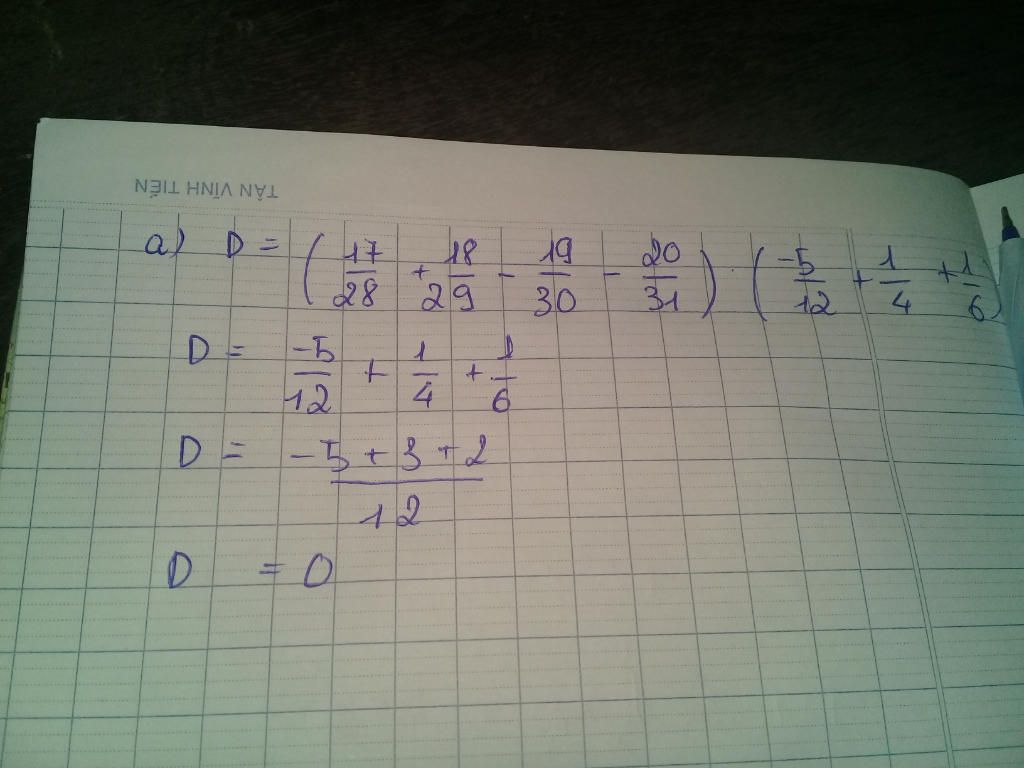 TÂN VĨNH TIẾN
a) D = ( 17/28 + 18/29 - 19/30 - 20/31 ) . ( -5/12 + 1/4 + 1/6 )
D = -5/12 + 1/4 + 1/6
D = -5 + 3 + 2 / 12
D = 0